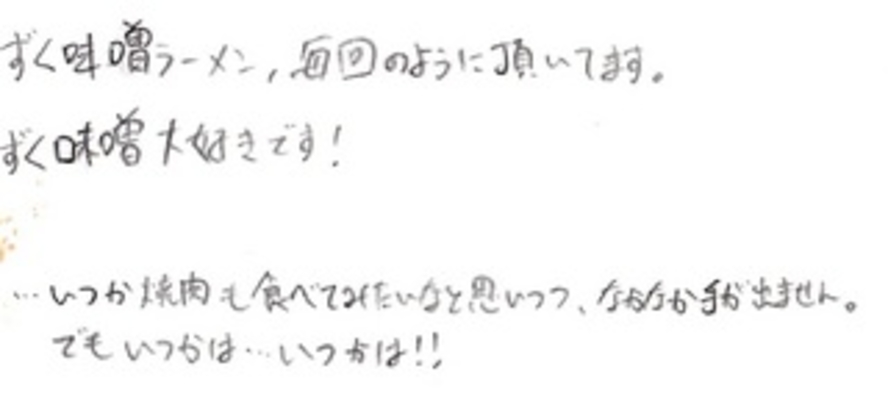 ずく味噌ラーメン,毎回のように頂いてます。
ずく味噌大好きです!
…いつか焼肉も食べてみたいなと思いつつ、なかなか手が出ません。
でもいつかは…いつかは!!